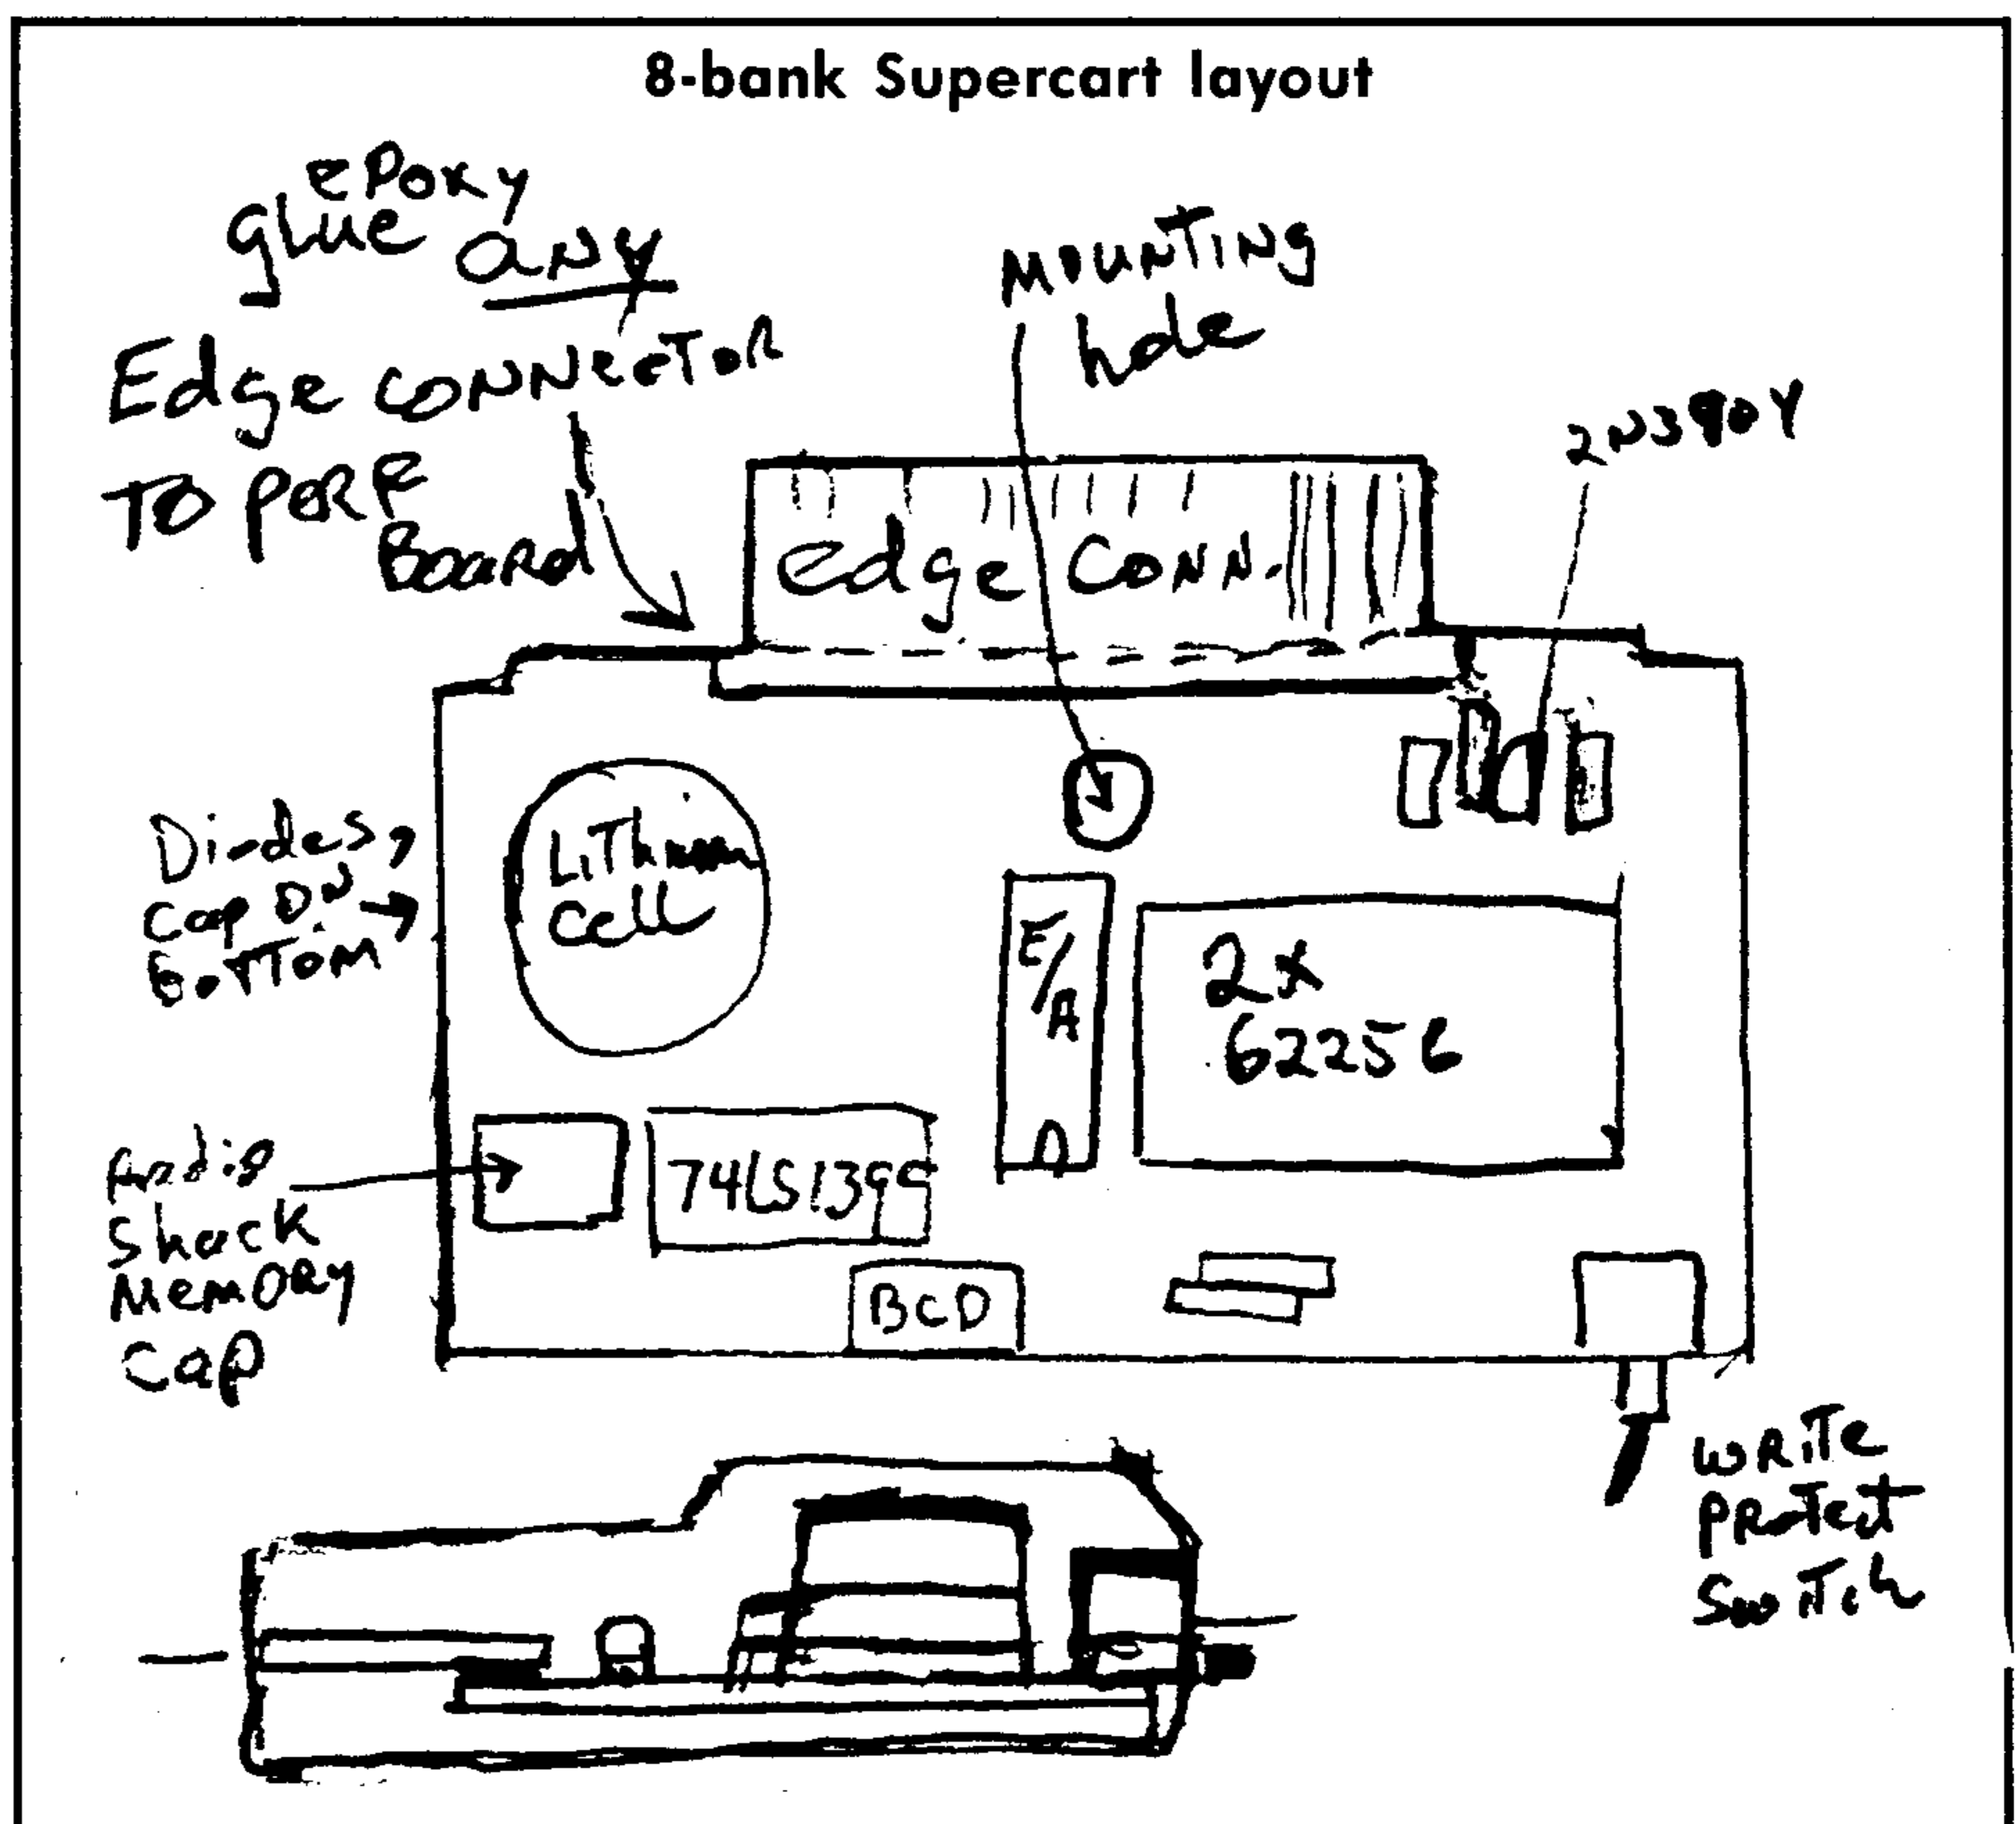 8-bank Supercart layout
epoxy
glue any
Edge connector
to perf
Board
Mounting
hole
2N3904
edge conn.
Diodes,
Cap on
bottom
Lithium
Cell
E/A
2x
62256
Radio
Shack
Memory
Cap
74LS139
BCD
Write
Protect
Switch